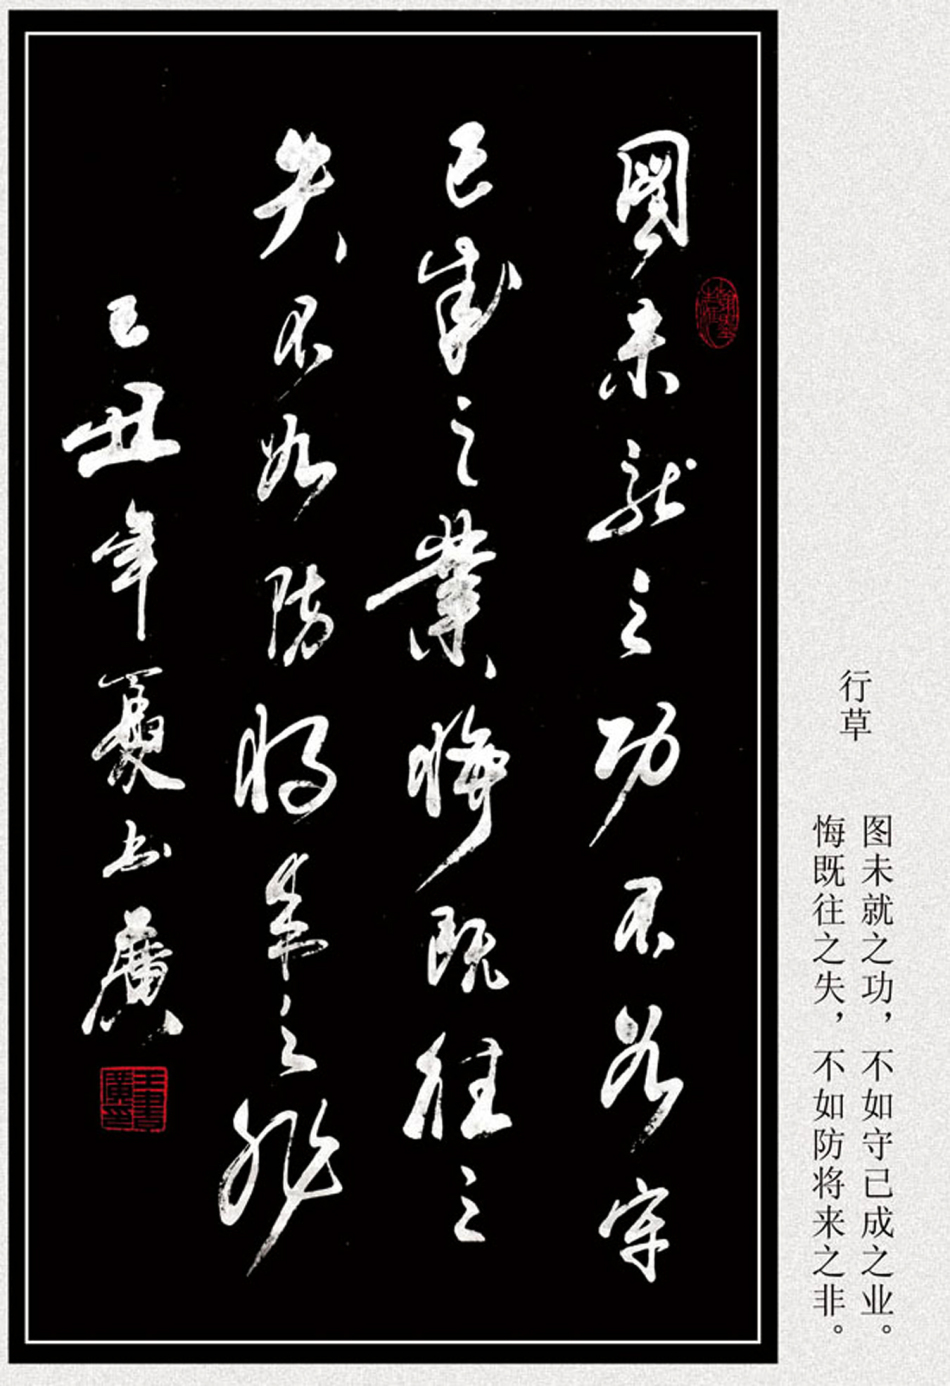 行草
图未就之功，不如守己成之业。
悔既往之失，不如防将来之非。
圖未就之功不如守
已成之業悔既往之
失不如防将来之非
己丑年夏书廣
王書廣印